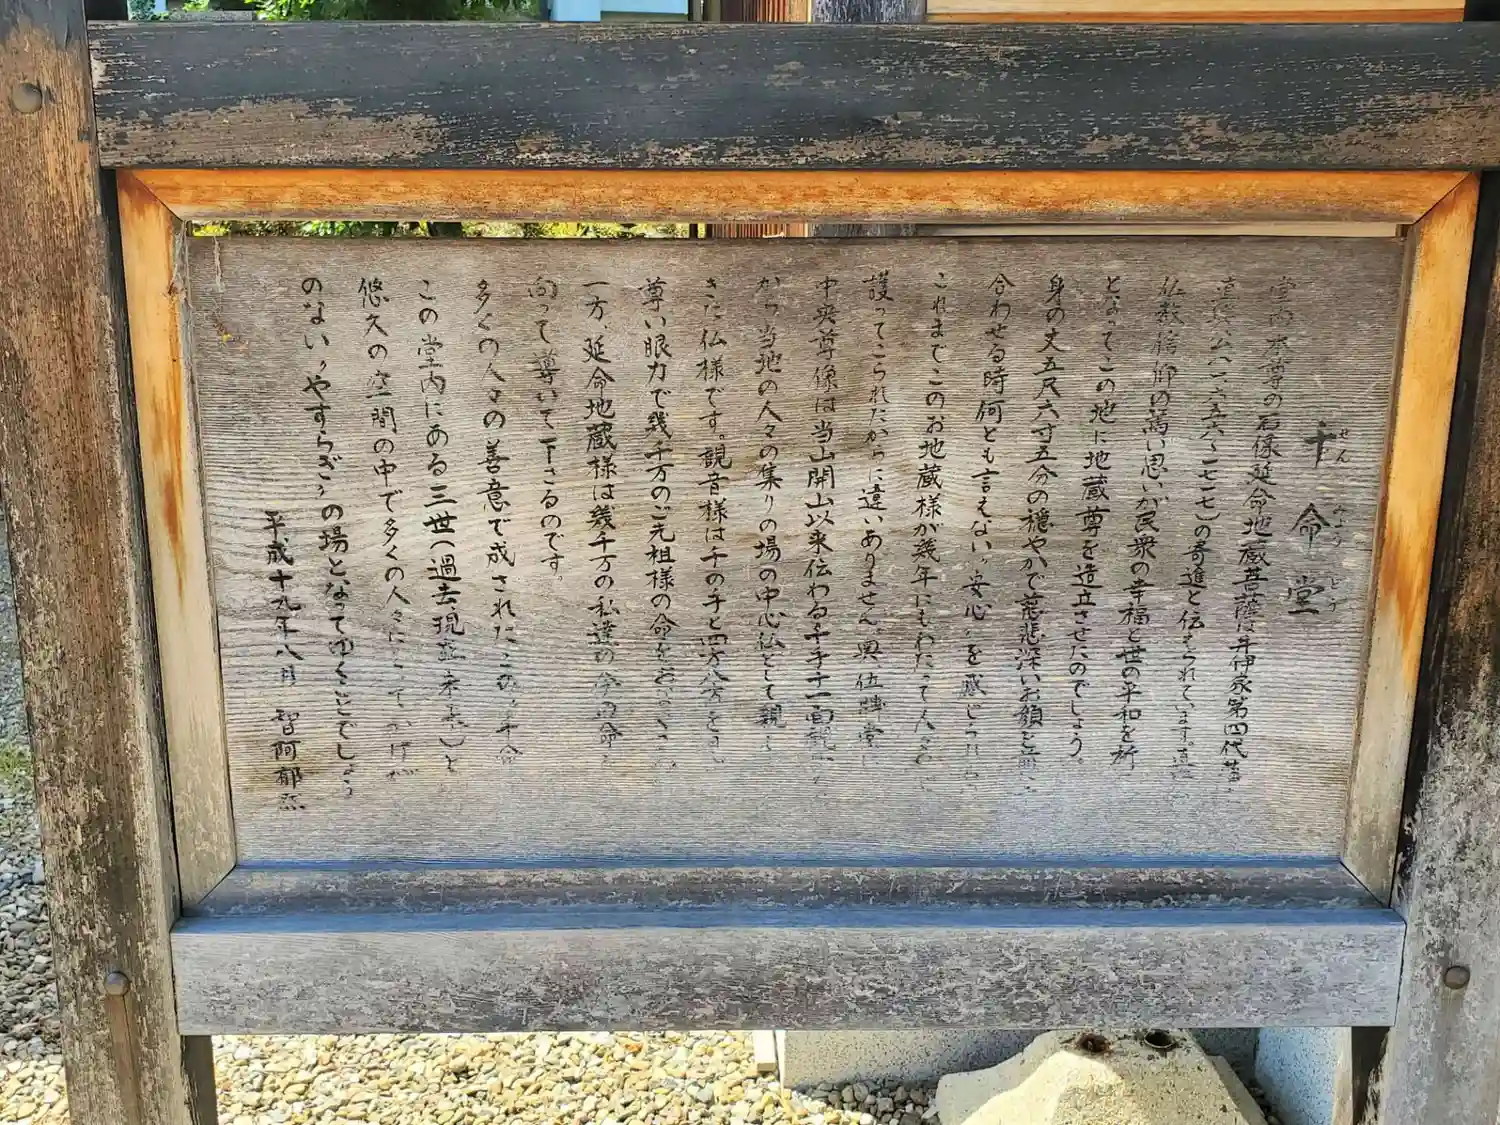 千命堂
せん みょう どう
堂内本尊の石像延命地蔵菩薩は井伊家第四代藩
直興公(一六五六〜一七一七)の寄進と伝えられています。直
仏教信仰の篤い思いが民衆の幸福と世の平和を祈
となってこの地に地蔵尊を造立させたのでしょう。
身の丈五尺六寸五分の穏やかで慈悲深いお顔を
合わせる時何とも言えない〝安心〟を感じ
これまでこのお地蔵様が幾年にもわたって人々
護ってこられたからに違いありません。
中央尊像は当山開山以来伝わる千手十一面観
から当地の人々の集りの場の中心仏として親
きた仏様です。観音様は千の手と四方八方を
尊い眼力で幾千万のご先祖様の命を
一方、延命地蔵様は幾千万の私達の今の命
向って導いて下さるのです。
多くの人々の善意で成されたこの〝千命
この堂内にある三世(過去、現在、未来)と
悠久の空間の中で多くの人々に
のない〝やすらぎ〟の場となってゆくことでしょう
平成十九年八月 智阿